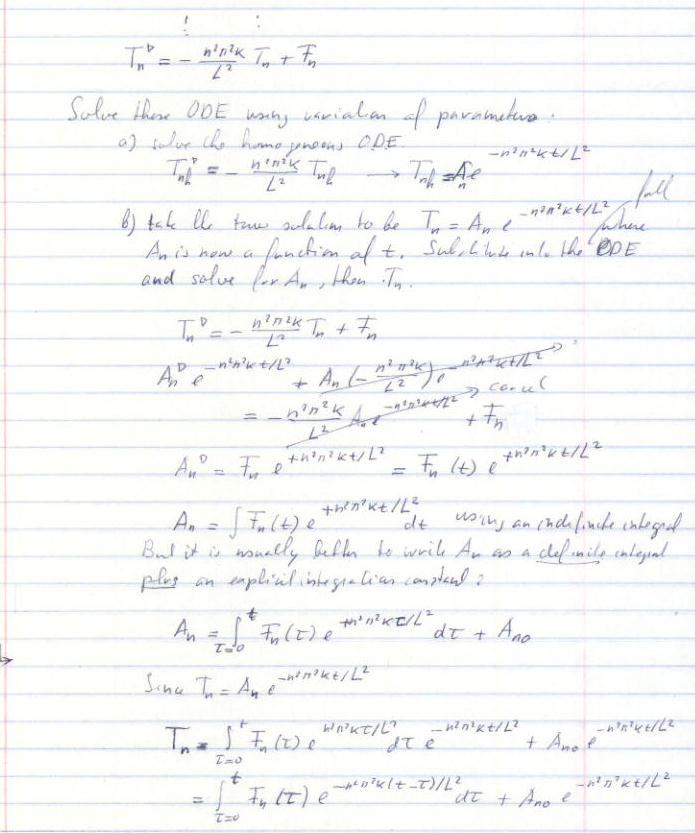 Tₙᴰ = - n²π²κ/L² Tₙ + Fₙ
Solve these ODE using variation of parameters.
a) solve the homogeneous ODE
Tₙₕᴰ = - n²π²κ/L² Tₙₕ → Tₙₕ = Aₙ e^(-n²π²κt/L²)
b) take the true solution to be Tₙ = Aₙ e^(-n²π²κt/L²) where full
Aₙ is now a function of t. Substitute into the ODE
and solve for Aₙ, then Tₙ.
Tₙᴰ = - n²π²κ/L² Tₙ + Fₙ
Aₙᴰ e^(-n²π²κt/L²) + Aₙ (- n²π²κ/L²) e^(-n²π²κt/L²)
cancel
= - n²π²κ/L² Aₙ e^(-n²π²κt/L²) + Fₙ
Aₙᴰ = Fₙ e^(+n²π²κt/L²) = Fₙ (t) e^(+n²π²κt/L²)
Aₙ = ∫ Fₙ(t) e^(+n²π²κt/L²) dt using an indefinite integral
But it is usually better to write Aₙ as a definite integral
plus an explicit integration constant:
Aₙ = ∫_(τ=0)^t Fₙ(τ) e^(+n²π²κτ/L²) dτ + Aₙ₀
Since Tₙ = Aₙ e^(-n²π²κt/L²)
Tₙ = ∫_(τ=0)^t Fₙ(τ) e^(n²π²κτ/L²) dτ e^(-n²π²κt/L²) + Aₙ₀ e^(-n²π²κt/L²)
= ∫_(τ=0)^t Fₙ(τ) e^(-n²π²κ(t-τ)/L²) dτ + Aₙ₀ e^(-n²π²κt/L²)